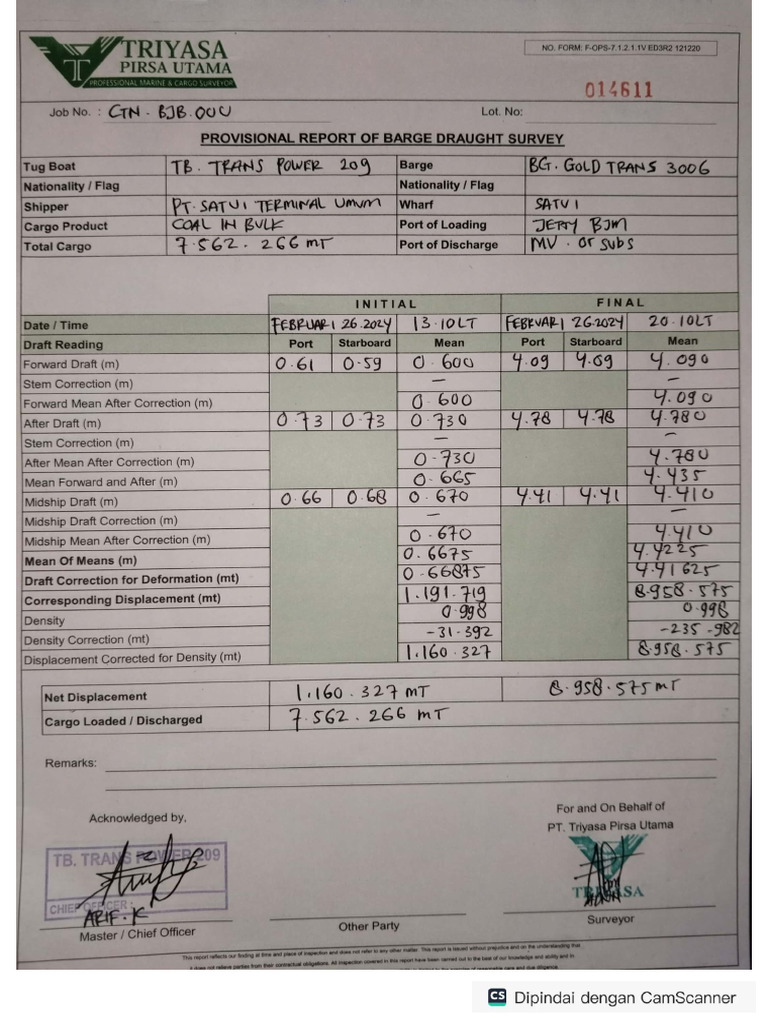 TRIYASA
PIRSA UTAMA
PROFESSIONAL MARINE & CARGO SURVEYOR
NO. FORM: F-OPS-7.1.2.1.1V ED3R2 121220
014611
Job No. : CTN. BJB.000 Lot. No:
PROVISIONAL REPORT OF BARGE DRAUGHT SURVEY
Tug Boat TB. TRANS POWER 209 Barge BG. GOLD TRANS 3006
Nationality / Flag Nationality / Flag
Shipper PT. SATUI TERMINAL UMUM Wharf SATUI
Cargo Product COAL IN BULK Port of Loading JETTY BJM
Total Cargo 7.562.266 MT Port of Discharge MV. Or Subs
INITIAL FINAL
Date / Time FEBRUARI 26.2024 13.10LT FEBRUARI 26.2024 20.10LT
Draft Reading Port Starboard Mean Port Starboard Mean
Forward Draft (m) 0.61 0.59 0.600 4.09 4.09 4.090
Stem Correction (m) — —
Forward Mean After Correction (m) 0.600 4.090
After Draft (m) 0.73 0.73 0.730 4.78 4.78 4.780
Stem Correction (m) — —
After Mean After Correction (m) 0.730 4.780
Mean Forward and After (m) 0.665 4.435
Midship Draft (m) 0.66 0.68 0.670 4.41 4.41 4.410
Midship Draft Correction (m) — —
Midship Mean After Correction (m) 0.670 4.410
Mean Of Means (m) 0.6675 4.4225
Draft Correction for Deformation (mt) 0.66875 4.41625
Corresponding Displacement (mt) 1.191.719 8.958.575
Density 0.998 0.998
Density Correction (mt) -31.392 -235.982
Displacement Corrected for Density (mt) 1.160.327 8.958.575
Net Displacement 1.160.327 MT 8.958.575 MT
Cargo Loaded / Discharged 7.562.266 MT
Remarks:
Acknowledged by,
For and On Behalf of
PT. Triyasa Pirsa Utama
TB. TRANS POWER 209
CHIEF OFFICER :
ARIF. K
TRIYASA
Master / Chief Officer Other Party Surveyor
This report reflects our finding at time and place of inspection and does not refer to any other matter. This report is issued without prejudice and on the understanding that
it does not relieve parties from their contractual obligations. All inspection covered in this report have been carried out to the best of our knowledge and ability and in
CS Dipindai dengan CamScanner